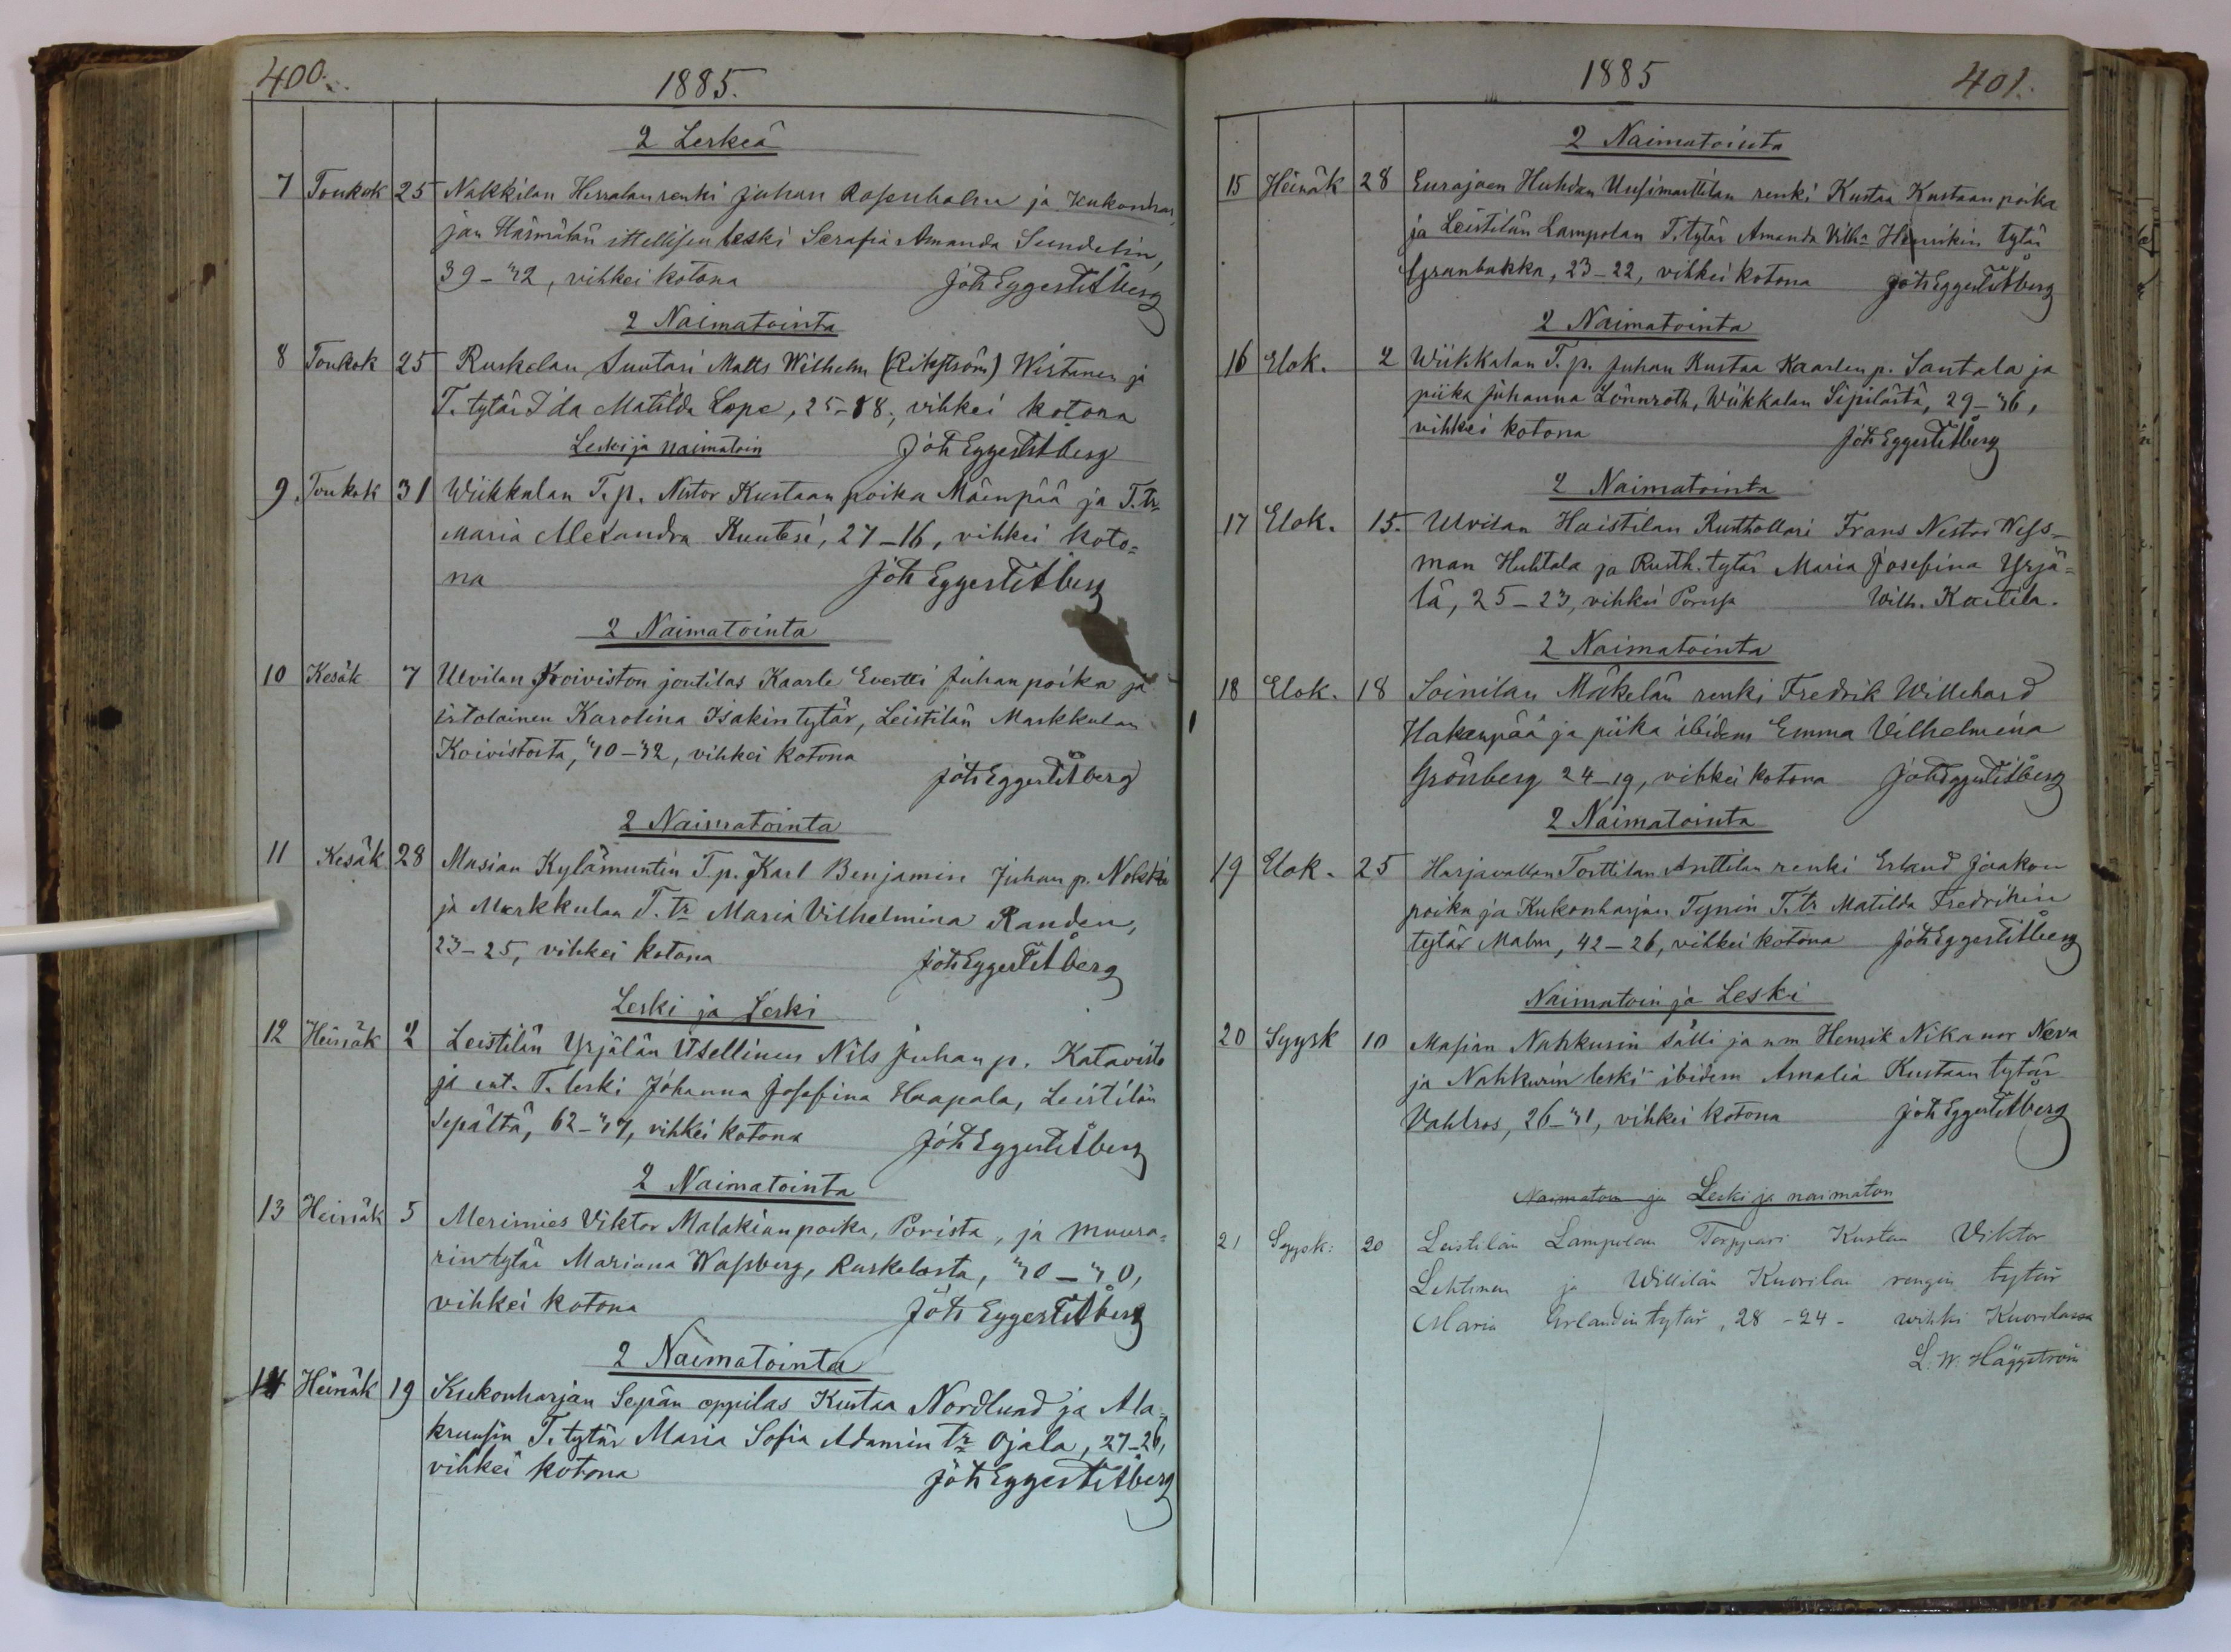 400.
1885.
2 Leskeä
7 Toukok 25 Nakkilan Herralan renki Juhan Rosenholm ja Kukonhar-
jan Härmälän ittellisen leski Serafia Amanda Sundelin,
39-42, vihkei kotona Joh Eggert Åberg
2 Naimatointa
8 Toukok 25 Ruskelan Suutari Matts Wilhelm Wistanen ja
T. tytär Ida Matilda Lope, 25-18, vihkei kotona
Leski ja naimatoin Joh Eggert Åberg
9 Toukok 31 Wiikkalan T. p. Nestor Kustaan poika Mäenpää ja T. tr
Maria Alexandra Kuutesi, 27-16, vihkei koto=
na Joh Eggert Åberg
2 Naimatointa
10 Kesäk 7 Ulvilan Koiviston joutilas Kaarle Evertti Juhan poika ja
irtolainen Karolina Isakin tytär, Leistilän Markkulan
Koivistosta, 40-42, vihkei kotona
Joh Eggert Åberg
2 Naimatointa
11 Kesäk 28 Masian Kylämuntin T. p. Karl Benjamin Juhan p.
ja Markkulan T. tr Maria Vilhelmina Randen,
23-25, vihkei kotona Joh Eggert Åberg
Leski ja Leski
12 Heinäk 2 Leistilän Yrjälän Itsellinen Nils Juhan p. Katavisto
ja ent. T. leski Johanna Josefina Haapala, Leistilän
Sepältä, 62-47, vihkei kotona Joh Eggert Åberg
2 Naimatointa
13 Heinäk 5 Merimies Viktor Malakian poika, Porista, ja muura=
rin tytär Mariana Wassberg, Ruskelasta, 40-40,
vihkei kotona Joh Eggert Åberg
2 Naimatointa
14 Heinäk 19 Kukonharjan Sepän oppilas Kustaa Nordlund ja Ala=
kruusin T. tytär Maria Sofia Adamin tr Ojala, 27-26,
vihkei kotona Joh Eggert Åberg
1885
401.
2 Naimatointa
15 Heinäk 28 Eurajoen Huhdan Uusimarttilan renki Kustaa Kustaan poika
ja Leistilän Lampolan T. tytär Amanda Vilha Henrikin tytär
Granbakka, 23-22, vihkei kotona Joh Eggert Åberg
2 Naimatointa
16 Elok. 2 Wiikkalan T. p. Juhan Kustaa Kaarlen p. Santala ja
piika Johanna Lönnroth, Wiikkalan Sipilästä, 29-36,
vihkei kotona Joh Eggert Åberg
2 Naimatointa
17 Elok. 15. Ulvilan Haistilan Rusthollari Frans Nestor Wess-
man Huhtala ja Rusth. tytär Maria Josefina Yrjä=
lä, 25-23, vihkei Porissa Wilh. Kastila.
2 Naimatointa
18 Elok. 18 Soinilan Mäkelän renki Fredrik Willehard
Hakenpää ja piika ibidem Emma Vilhelmina
Grönberg 24-19, vihkei kotona Joh Eggert Åberg
2 Naimatointa
19 Elok. 25 Harjavallan Torttilan Anttilan renki Erland Jaakon
poika ja Kukonharjan Tynin T. tr Matilda Fredrikin
tytär Malm, 42-26, vihkei kotona Joh Eggert Åberg
Naimatoin ja Leski
20 Syysk 10 Masian Nahkurin sälli ja nm Henrik Nikanor Neva
ja Nahkurin leski ibidem Amalia Kustaan tytär
Vahlros, 26-31, vihkei kotona Joh Eggert Åberg
Naimatoin ja Leski ja naimaton
21 Syysk: 20 Leistilän Lampolan Torppari Kustaa Viktor
Lehtinen ja Willilän Kuorilan rengin tytär
Maria Erlandin tytär, 28-24- vihki Kuorilassa
L. W. Häggström